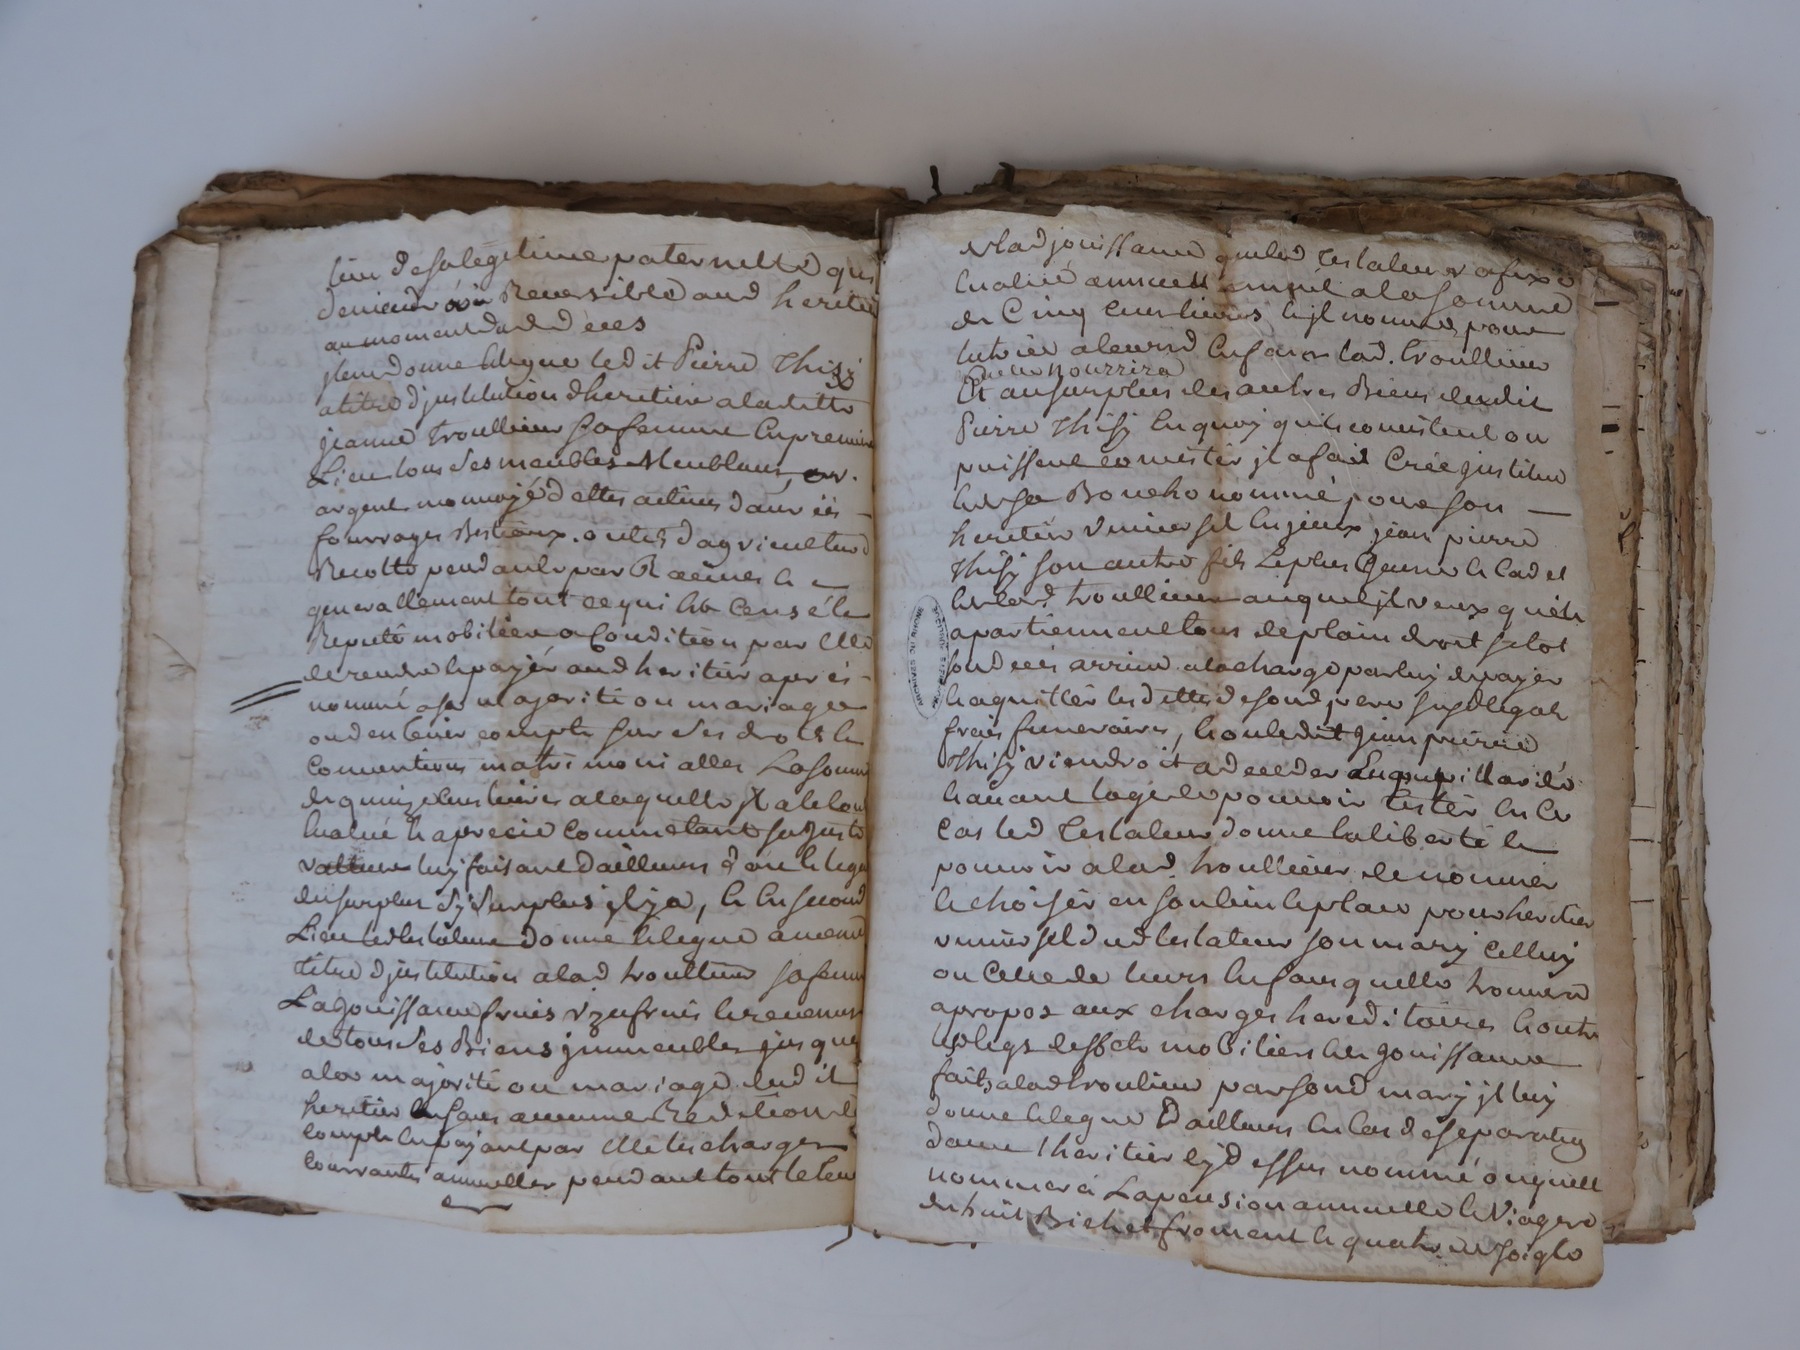 lieu de sa légitime paternelle qui
demeurera Reversible aud heritier
au moment dud deces
jtem donne legue ledit Pierre Thisy
a titre djnstitution dheritiere a ladette
jeanne troullieur sa femme En premier
Lieu tous ses meubles Meublant, or.
argent monnoyé dettes actives danrées
fourrages Bestiaux. outils dagriculture
Recolte pendante par Racines Et
generallement tout ce qui Est Censé Et
Reputé mobilier a Condition par Elle
de rendre Et payer aud heritier aprés
nommé a sa majorité ou mariage
oud en tenir compte sur ses droits Et
Conventions matrimonialles La somme
de quinze Cens livres a laquelle jl a le tout
Evalué Et aprecié Comme etant sa juste
valleur luy faisant dailleurs don Et legat
du surplus sy surplus jl y a, Et En second
Lieu led testateur donne Et legue a meme
titre djnstitution a lad troullieur sa femme
La jouissance fruis Vzufruis Et revenus
de tous ses Biens jmmeubles jusques
a la majorité ou mariage dud it
heritier sans aucunne Reddition de
compte En payant par Elle les charges
Courrantes annuelles pendant tout le tems
de lad jouissance que led Testateur a fixé
Evalué annuellement a la somme
de Cinq Cens livres Et jl nomme pour
tutrice a leursd Enfans lad. troullieur
quelle nourrira
Et au surplus des autres Biens dudit
Pierre Thisy En quoy quils consistent ou
puissent consister jl a fait Créé jnstitué
Et de sa Bouche nommé pour son
heritier Vniversel En jceux jean pierre
Thisy son autre fils Le plus jeune Et lad et
de lad. troullieur auquel jl veux quils
apartiennent tous de plain droit sitot
sond deces arrivé a la charge par luy de payer
Et aquitter les dettes de sond pere susd legats
frais funeraires, Et ou ledit jean pierre
Thisy viendroit a deceder En pupillarité
Et avant lage de pouvoir tester En Ce
Cas led Testateur donne la liberté Et
pouvoir a lad. troullieur de nommer
Et choisir en son lieu Et place pour heritier
vniversel dud testateur son mary celluy
ou Celle de leurs Enfans quelle trouvera
apropos aux charges hereditaires Et outre
les legs deffets mobiliers Et de jouissance
faits a lad troulieur par sond mary jl luy
donne Et legue Dailleurs En Cas de separation
davec lheritier cy dessus nommé ou quelle
nommera La pension annuelle Et Viagere
de huit Bichet froment Et quatre de soigle
ARCHIVES DU RHONE